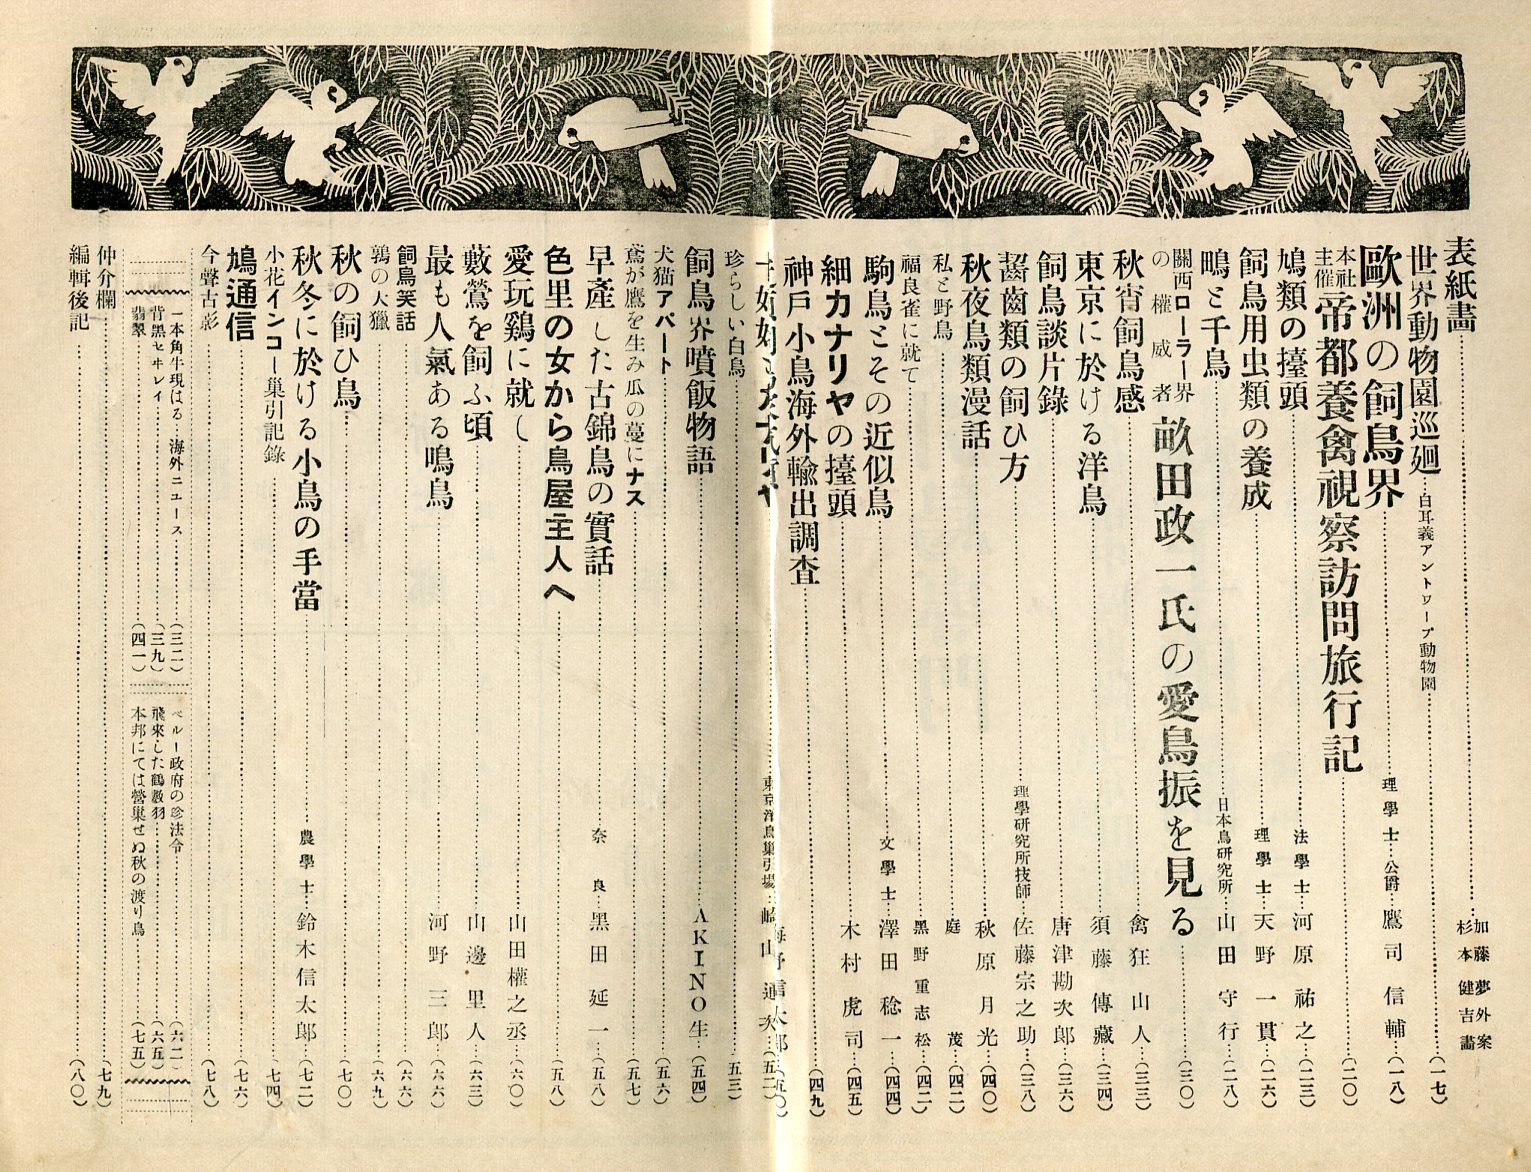 表紙畫 加藤夢外案
杉本健吉畫
世界動物園巡廻 白耳義アントワープ動物園 (一七)
歐洲の飼鳥界 理學士・公爵 鷹司信輔 (一八)
本社主催 帝都養禽視察訪問旅行記 (二〇)
鳩類の擡頭 法學士 河原祐之 (二三)
飼鳥用虫類の養成 理學士 天野一貫 (二六)
鴫と千鳥 日本鳥研究所 山田守行 (二八)
關西ローラー界の權威者 畝田政一氏の愛鳥振を見る (三〇)
秋宵飼鳥感 禽狂山人 (三三)
東京に於ける洋鳥 須藤傳藏 (三四)
飼鳥談片錄 唐津勘次郎 (三六)
齧齒類の飼ひ方 理學研究所技師 佐藤宗之助 (三八)
秋夜鳥類漫話 秋原月光 (四〇)
私と野鳥 庭茂 (四二)
福良雀に就て 黑野重志松 (四二)
駒鳥とその近似鳥 文學士 澤田稔一 (四四)
細カナリヤの擡頭 木村虎司 (四五)
神戸小鳥海外輸出調査 (四九)
海野信太郎 (五〇)
東京洋鳥巢引場 山通次 (五二)
珍らしい白鳥 五三)
飼鳥界噴飯物語 AKINO生 (五四)
犬猫アパート (五六)
鳶が鷹を生み瓜の蔓にナス (五七)
早產した古錦鳥の實話 奈良 黑田延一 (五八)
色里の女から鳥屋主人へ 五八)
愛玩鷄に就し 山田權之丞 (六〇)
藪鶯を飼ふ頃 山邊里人 (六三)
最も人氣ある鳴鳥 河野三郎 (六六)
飼鳥笑話 (六六)
鶉の大獵 (六九)
秋の飼ひ鳥 (七〇)
秋冬に於ける小鳥の手當 農學士 鈴木信太郎 (七二)
小花インコー巢引記錄 (七四)
鳩通信 (七六)
今聲古影 (七八)
一本角牛現はる・海外ニュース (三二)
背黑セキレイ (三九)
翡翠 (四一)
ペルー政府の珍法令 (六二)
飛來した鶴數羽 (六五)
本邦にては營巢せぬ秋の渡り鳥 (七五)
仲介欄 七九)
編輯後記 (八〇)